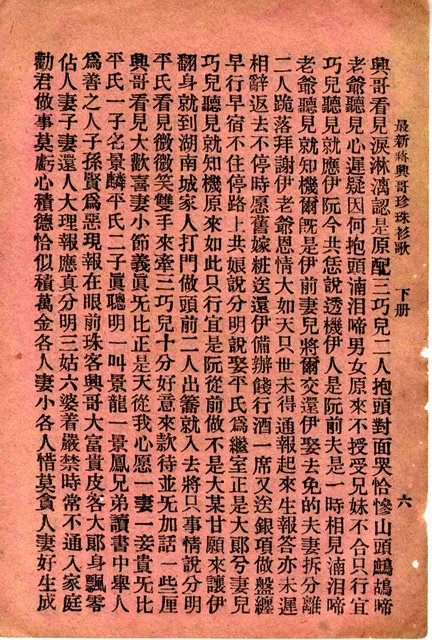 最新蔣興哥珍珠衫歌　下册　六
興哥看見淚淋漓認是原配三巧兒二人抱頭對面哭恰慘山頭鷓鴣啼
老爺聽見心遲疑因何抱頭滿泪啼男女原來不授受兄妹不合只行宜
巧兒聽見就應伊阮今共恁說透機伊人是阮前夫是一時相見滿泪啼
老爺聽見就知機爾旣是伊前妻兒將爾交還伊娶去免的夫妻拆分離
二人跪落拜謝伊老爺恩情大如天只世未得通報起來生報答亦未遲
相辭返去不停時愿舊嫁粧送還伊備辦餞行酒一席又送銀項做盤纏
早行早宿不住停路上共娘說分明說娶平氏爲繼室正是大郎兮妻兒
巧兒聽見就知機原來如此只行宜是阮從前做不是大某甘願來讓伊
翻身就到湖南城家人打門做頭前二人出薵就入去將只事情說分明
平氏看見微微笑雙手來牽三巧兒十分好意來款待並无加話一些厘
興哥看見大歡喜妻小節義眞无比正是天從我心愿一妻一妾貴无比
平氏一子名景麟平氏二子眞聰明一叫景龍一景鳳兄弟讀書中舉人
爲善之人子孫賢爲惡現報在眼前珠客興哥大富貴皮客大郎身飄零
佔人妻子妻還人大理報應真分明三姑六婆着嚴禁時常不通入家庭
勸君做事莫虧心積德恰似積萬金各人妻小各人惜莫貪人妻好生成